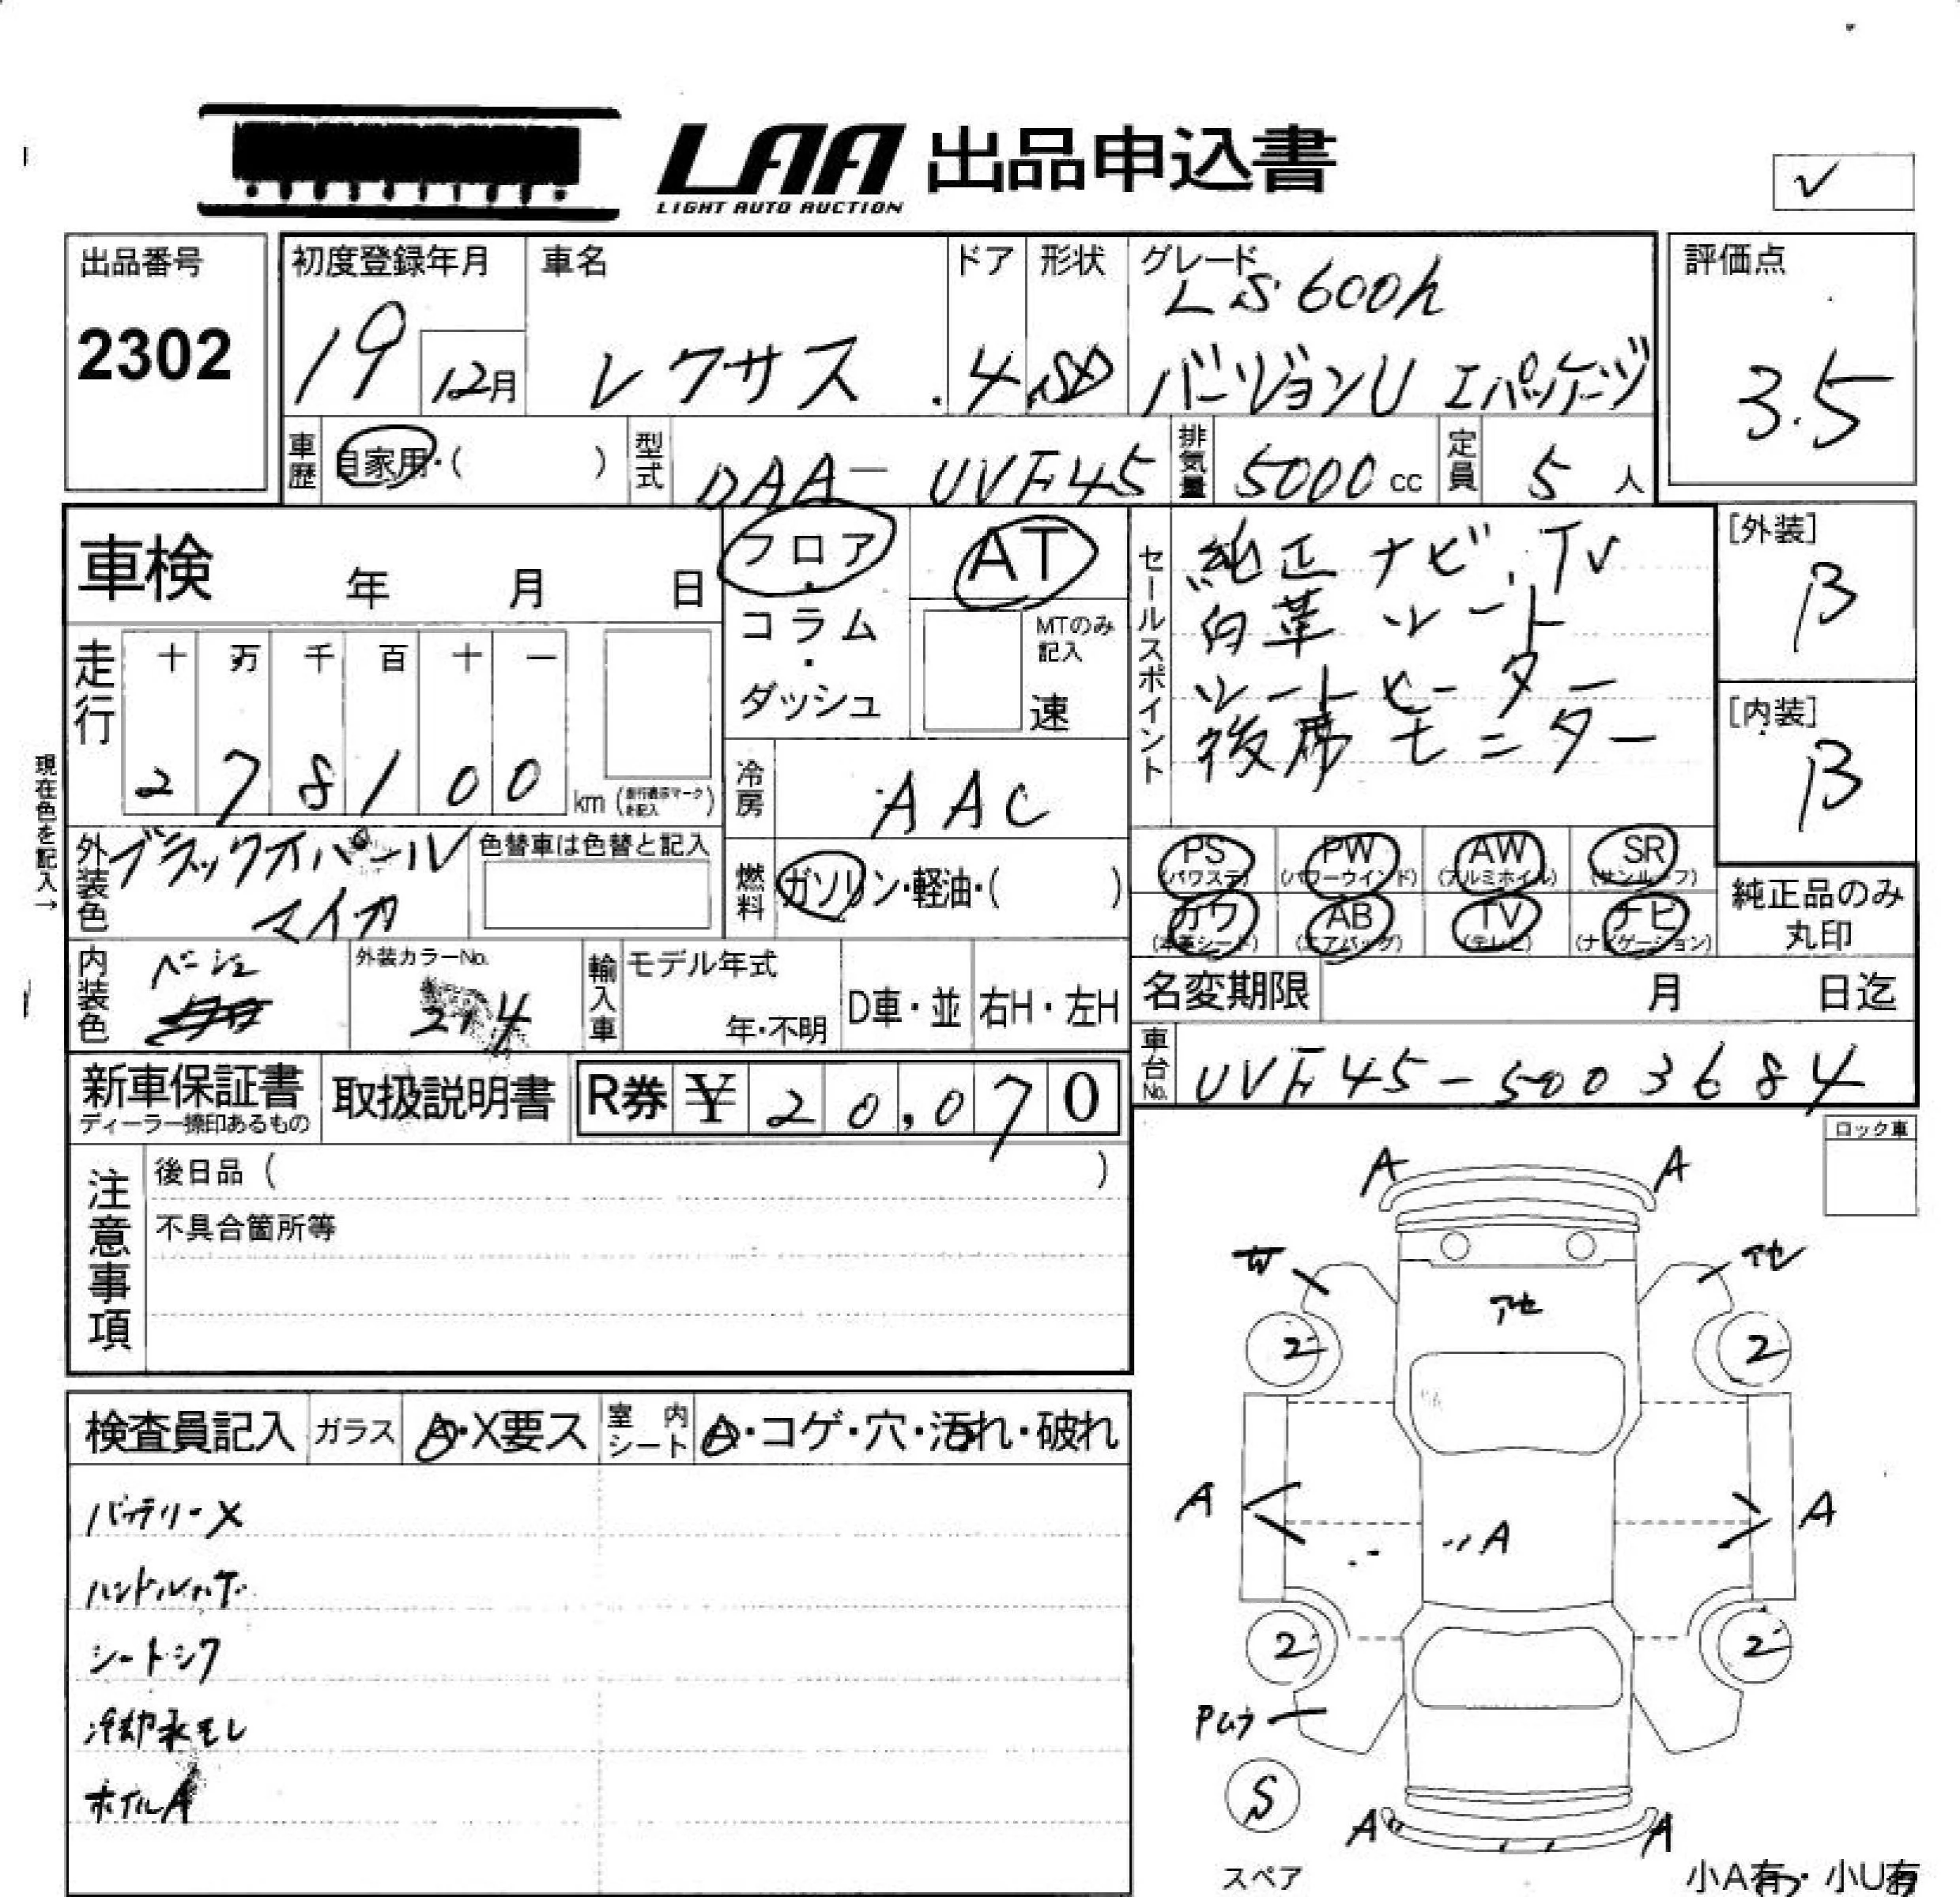 LAA 出品申込書
LIGHT AUTO AUCTION
✓
出品番号
2302
初度登録年月
19
12月
車名
レクサス
ドア
4
形状
SD
グレード
LS600h
バージョンU Iパッケージ
評価点
3.5
車歴
自家用・( )
型式
DAA-UVF45
排気量
5000cc
定員
5人
車検 年 月 日
フロア・コラム・ダッシュ
AT
MTのみ
記入
速
セールスポイント
純正ナビ.TV
白革シート
シートヒーター
後席モニター
[外装]
B
[内装]
B
走行
十 万 千 百 十 一
2 7 8 1 0 0
km
現在色を記入→
冷房
AAC
外装色
ブラックオパール
マイカ
色替車は色替と記入
燃料
ガソリン・軽油・( )
PS
(パワステ)
PW
(パワーウインド)
AW
(アルミホイル)
SR
(サンルーフ)
カワ
(本革シート)
AB
(エアバッグ)
TV
(テレビ)
ナビ
(ナビゲーション)
純正品のみ
丸印
内装色
ベージュ
外装カラーNo.
214
輸入車
モデル年式
年・不明
D車・並
右H・左H
名変期限 月 日迄
車台No.
UVF45-5003684
新車保証書
ディーラー捺印あるもの
取扱説明書
R券 ¥ 20,070
ロック車
注意事項
後日品 ( )
不具合箇所等
検査員記入
ガラス
A・X要ス
室内シート
A・コゲ・穴・汚れ・破れ
バッテリーX
ハンドルハゲ
シートシワ
冷却水モレ
ホイルA
A A
アセ
アセ
2 2
A A
A
2 2
Pムラ
S
スペア
A A
小A有・小U有